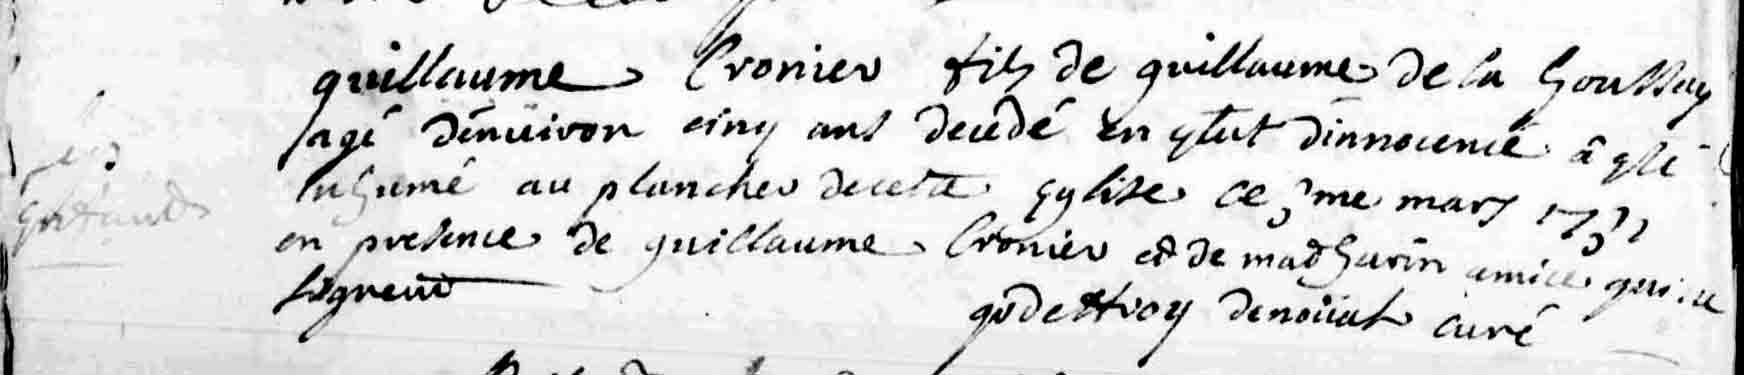 guillaume Cronier fils de guillaume de la houssay
agé dénuiron cinq ans decedé en état dinnocence â été
inhumé au plancher de cette Eglise ce 3me mars 1731
en presence de guillaume Cronier et de mathurin amice qui ne
signent
godeffroy denoüal curé
enfant